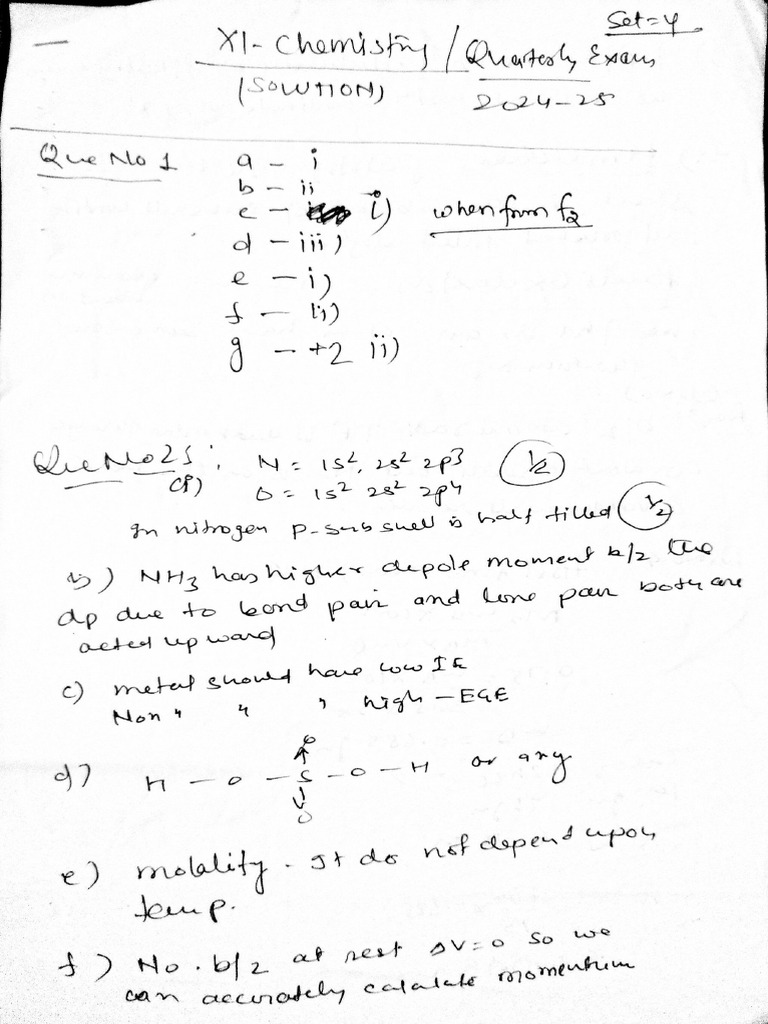 Set=4
XI- Chemistry / Quarterly Exam,
(SOLUTION) 2024-25
Que No 1 a - i
b - ii
c - i) when from f2
d - iii)
e - i)
f - ii)
g - +2 ii)
Que No 2 : N = 1s², 2s² 2p3 (1/2)
O = 1s² 2s² 2p4
In nitrogen p-subshell is half filled (1/2)
b) NH3 has higher dipole moment b/z the
dp due to bond pair and lone pair both are
acted upward
c) metal should have low IE
Non " " " high -EGE
d) H - O - S - O - H or any
O
O
e) molality. It do not depend upon
temp.
f) No. b/z at rest ΔV=0 so we
can accurately calalate momentum